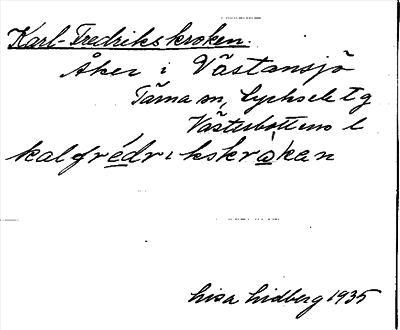 Karl-Fredrikskroken.
Åker i Västansjö
Tärna sn, Lycksele tg
Västerbottens l
kalfrédrikskrò̱kan
Lisa Lidberg 1935